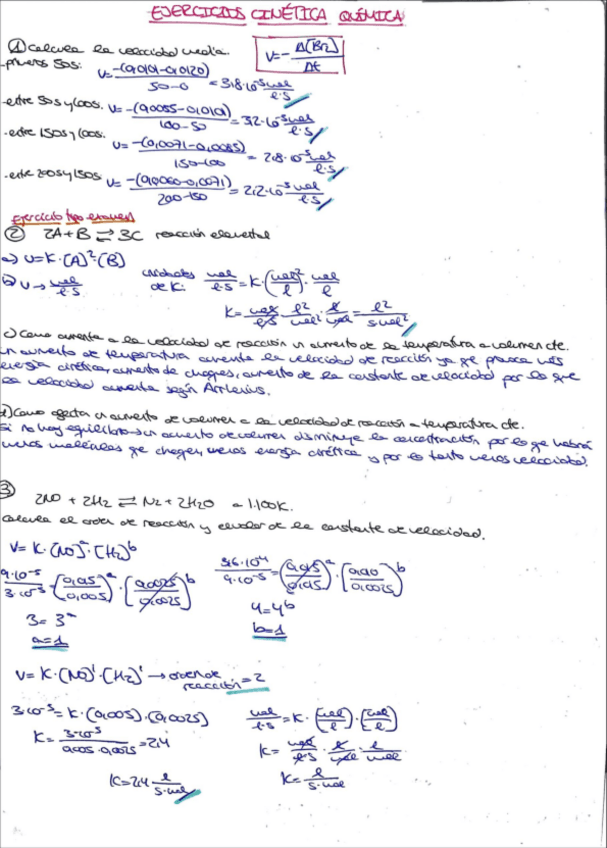 EJERCICIOS CINÉTICA QUÍMICA
① Calcula la velocidad media.
V = - Δ[Br2] / Δt
-primeros 50s: V = -(0,0101-0,0120) / 50-0 = 3,8·10^-5 mol/l·s
-entre 50s y 100s. V = -(0,0085-0,0101) / 100-50 = 3,2·10^-5 mol/l·s
-entre 150s y 100s. V = -(0,0071-0,0085) / 150-100 = 2,8·10^-5 mol/l·s
-entre 200s y 150s. V = -(0,0060-0,0071) / 200-150 = 2,2·10^-5 mol/l·s
Ejercicio tipo examen
② 2A + B ⇌ 3C reacción elemental
a) V = K·(A)²·(B)
b) V → mol/l·s unidades de K: mol/l·s = K·(mol/l)²·mol/l
K = mol/l·s · l²/mol² · l/mol = l²/s·mol²
c) Como aumenta a la velocidad de reacción un aumento de la temperatura a volumen cte.
un aumento de temperatura aumenta la velocidad de reacción ya que provoca más
energía cinética, aumento de choques, aumento de la constante de velocidad por lo que
la velocidad aumenta según Arrhenius.
d) Como afecta un aumento de volumen a la velocidad de reacción a temperatura cte.
Si no hay equilibrio → un aumento de volumen disminuye la concentración por lo que habrá
menos moléculas que choquen, menos energía cinética y por lo tanto menos velocidad.
③
2NO + 2H2 ⇌ N2 + 2H2O a 1.100K.
Calcula el orden de reacción y el valor de la constante de velocidad.
V = K·[NO]^a·[H2]^b
9·10^-5 / 3·10^-5 = (0,015/0,005)^a · (0,0025/0,0025)^b
3,6·10^-4 / 9·10^-5 = (0,015/0,015)^a · (0,010/0,0025)^b
3 = 3^a
4 = 4^b
a = 1
b = 1
V = K·(NO)^1·(H2)^1 → orden de reacción = 2
3·10^-5 = K·(0,005)·(0,0025)
mol/l·s = K·[mol/l]·[mol/l]
K = 3·10^-5 / 0,005·0,0025 = 2,4
K = mol/l·s · l/mol · l/mol
K = 2,4 l/s·mol
K = l/s·mol